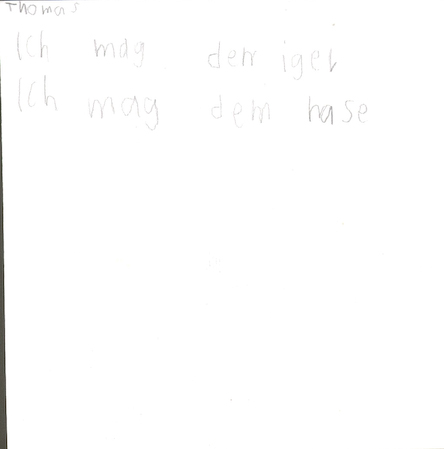 Thomas
Ich mag den igel
Ich mag dem hase